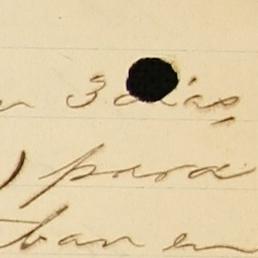 3 días,
) para
ban en